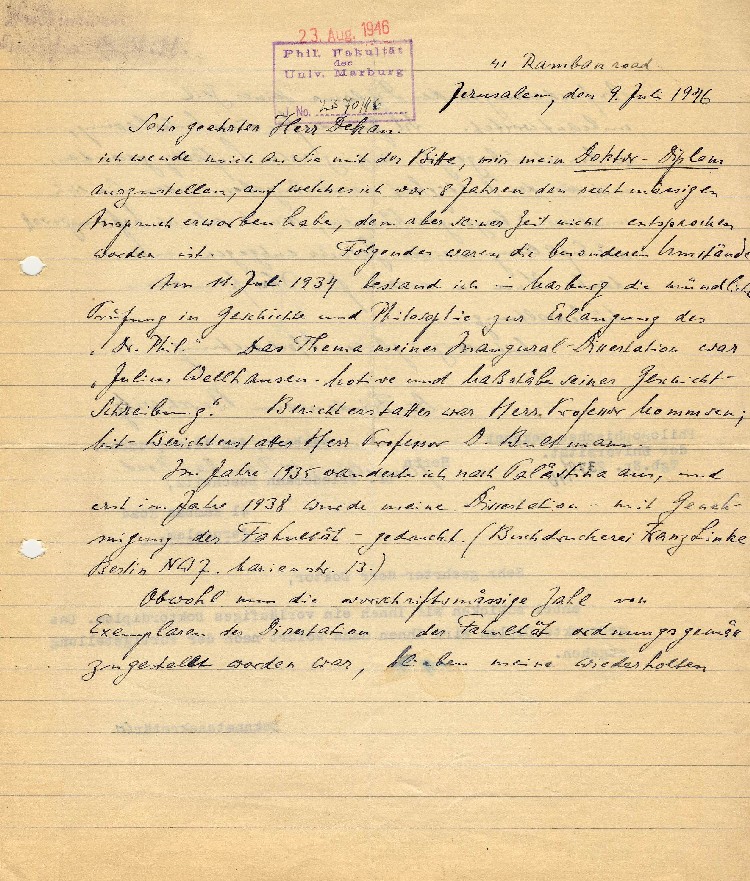 23. Aug. 1946
Phil. Fakultät
der
Univ. Marburg
No.
41 Ramban road
Jerusalem, den 9. Juli 1946
Sehr geehrter Herr Dekan.
ich wende mich an Sie mit der Bitte, mir mein Doktor-Diplom
auszustellen, auf welches ich vor 8 Jahren den rechtmässigen
Anspruch erworben habe, dem aber seiner Zeit nicht entsprochen
worden ist. Folgendes waren die besonderen Umstände
Am 11. Juli 1934 bestand ich in Marburg die mündliche
Prüfung in Geschichte und Philosophie zur Erlangung des
„Dr. Phil." Das Thema meiner Inaugural-Dissertation war
„Julius Wellhausen - Motive und Maßstäbe seiner Geschicht-
schreibung". Berichterstatter war Herr Professor Mommsen;
Mit-Berichterstatter Herr Professor D. Bultmann.
Im Jahre 1935 wanderte ich nach Palästina aus, und
erst im Jahre 1938 wurde meine Dissertation - mit Geneh-
migung der Fakultät - gedruckt. (Buchdruckerei Franz Linke
Berlin NW7. Marienstr. 13.)
Obwohl nun die vorschriftsmässige Zahl von
Exemplaren der Dissertation der Fakultät ordnungsgemäß
zugestellt worden war, blieben meine wiederholten